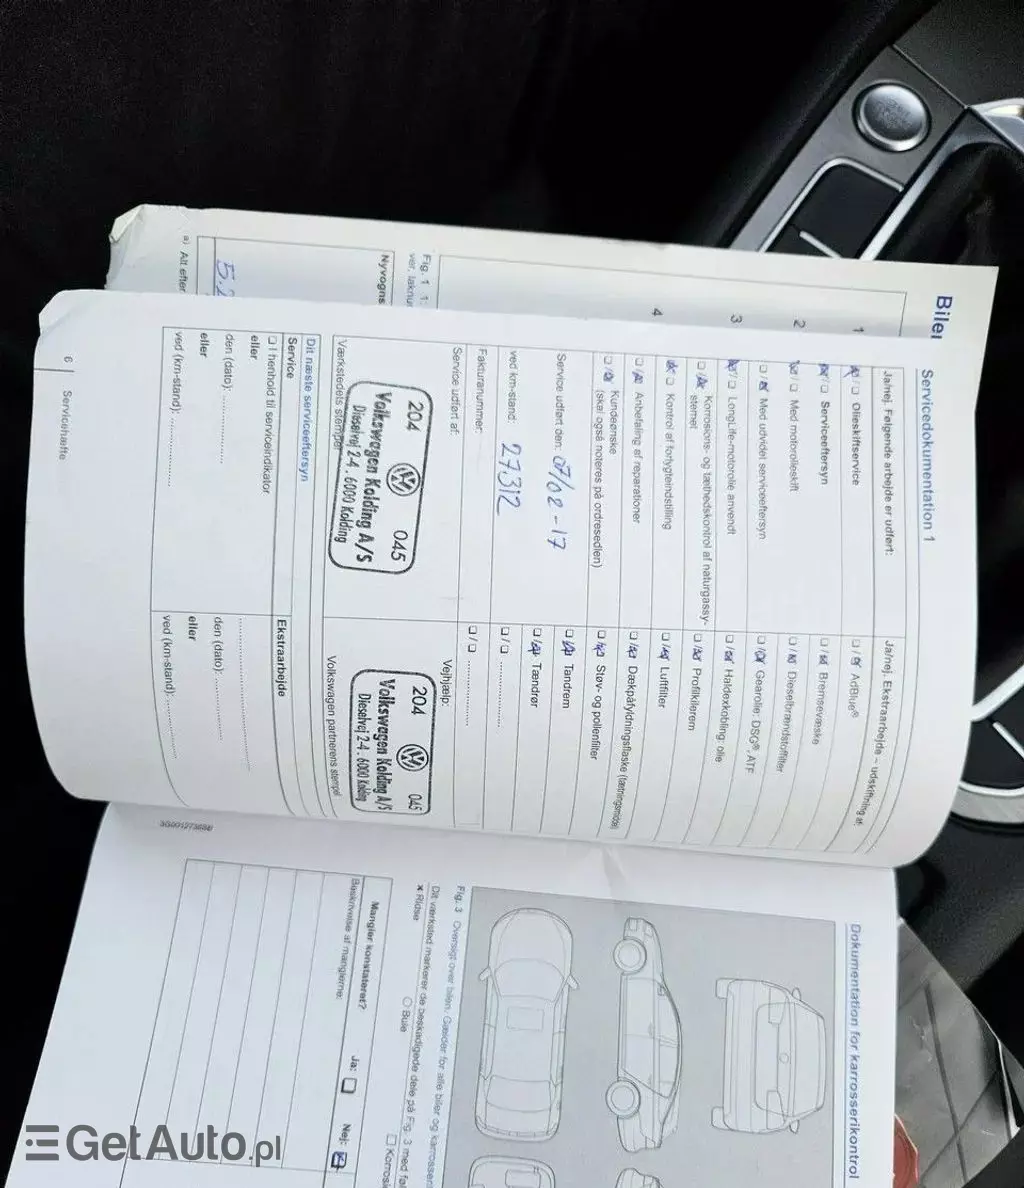 Biler
1
2
3
4
Fig. 1 1:
ver, laknu
Nyvogns
5.2
a) Alt efter
Servicedokumentation 1
Ja/nej. Følgende arbejde er udført:
☐ / ☐ Olieskiftservice
☐ / ☐ Serviceeftersyn
☐ / ☐ Med motorolieskift
☐ / ☐ Med udvidet serviceeftersyn
☐ / ☐ LongLife-motorolie anvendt
☐ / ☐ Korrosions- og tæthedskontrol af naturgassy-
stemet
☐ / ☐ Kontrol af forlygteindstilling
☐ / ☐ Anbefaling af reparationer
☐ / ☐ Kundeønske
(skal også noteres på ordresedlen)
Service udført den: 07/02-17
ved km-stand: 27312
Fakturanummer:
Service udført af:
204 045
Volkswagen Kolding A/S
Dieselvej 2-4 . 6000 Kolding
Værkstedets stempel
Ja/nej. Ekstraarbejde – udskiftning af:
☐ / ☐ AdBlue®
☐ / ☐ Bremsevæske
☐ / ☐ Dieselbrændstoffilter
☐ / ☐ Gearolie: DSG®, ATF
☐ / ☐ Haldexkobling: olie
☐ / ☐ Profilkilerem
☐ / ☐ Luftfilter
☐ / ☐ Dækpåfyldningsflaske (tætningsmiddel)
☐ / ☐ Støv- og pollenfilter
☐ / ☐ Tandrem
☐ / ☐ Tændrør
☐ / ☐ ...............
☐ / ☐ ...............
Vejhjælp:
204 045
Volkswagen Kolding A/S
Dieselvej 2-4 . 6000 Kolding
Volkswagen partnerens stempel
Dit næste serviceeftersyn
Service
☐ I henhold til serviceindikator
eller
den (dato): ...............
eller
ved (km-stand): ...............
Ekstraarbejde
...............
den (dato): ...............
eller
ved (km-stand): ...............
6 Servicehæfte
Dokumentation for karrosserikontrol
Fig. 3 Oversigt over bilen. Gælder for alle biler og karrosseri
Dit værksted markerer de beskadigede dele på Fig. 3 med føl
× Ridse
○ Bule
☐ Korrosi
Mangler konstateret?
Ja: ☐
Nej: ☒
Beskrivelse af manglerne:
GetAuto.pl